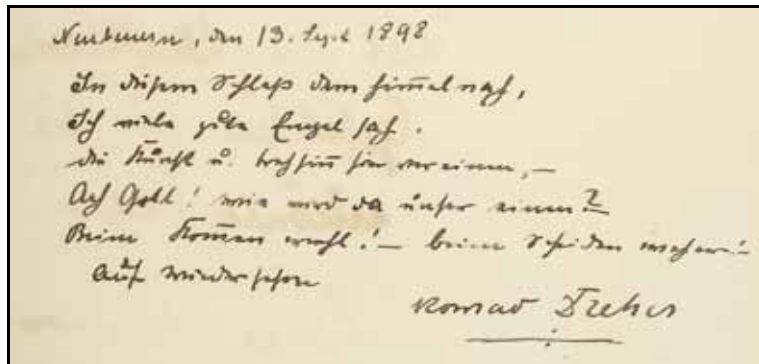 Neubeuern, den 13. Sept 1898
In diesem Schloß dem Him̄el nah,
Ich viele gute Engel sah.
die Kunst u. Frohsin̄ hier vereinen, —
Ach Gott! wie wird da unser einem?
Beim Kom̄en wohl! — beim Scheiden
Auf Wiedersehen
Konrad Dreher